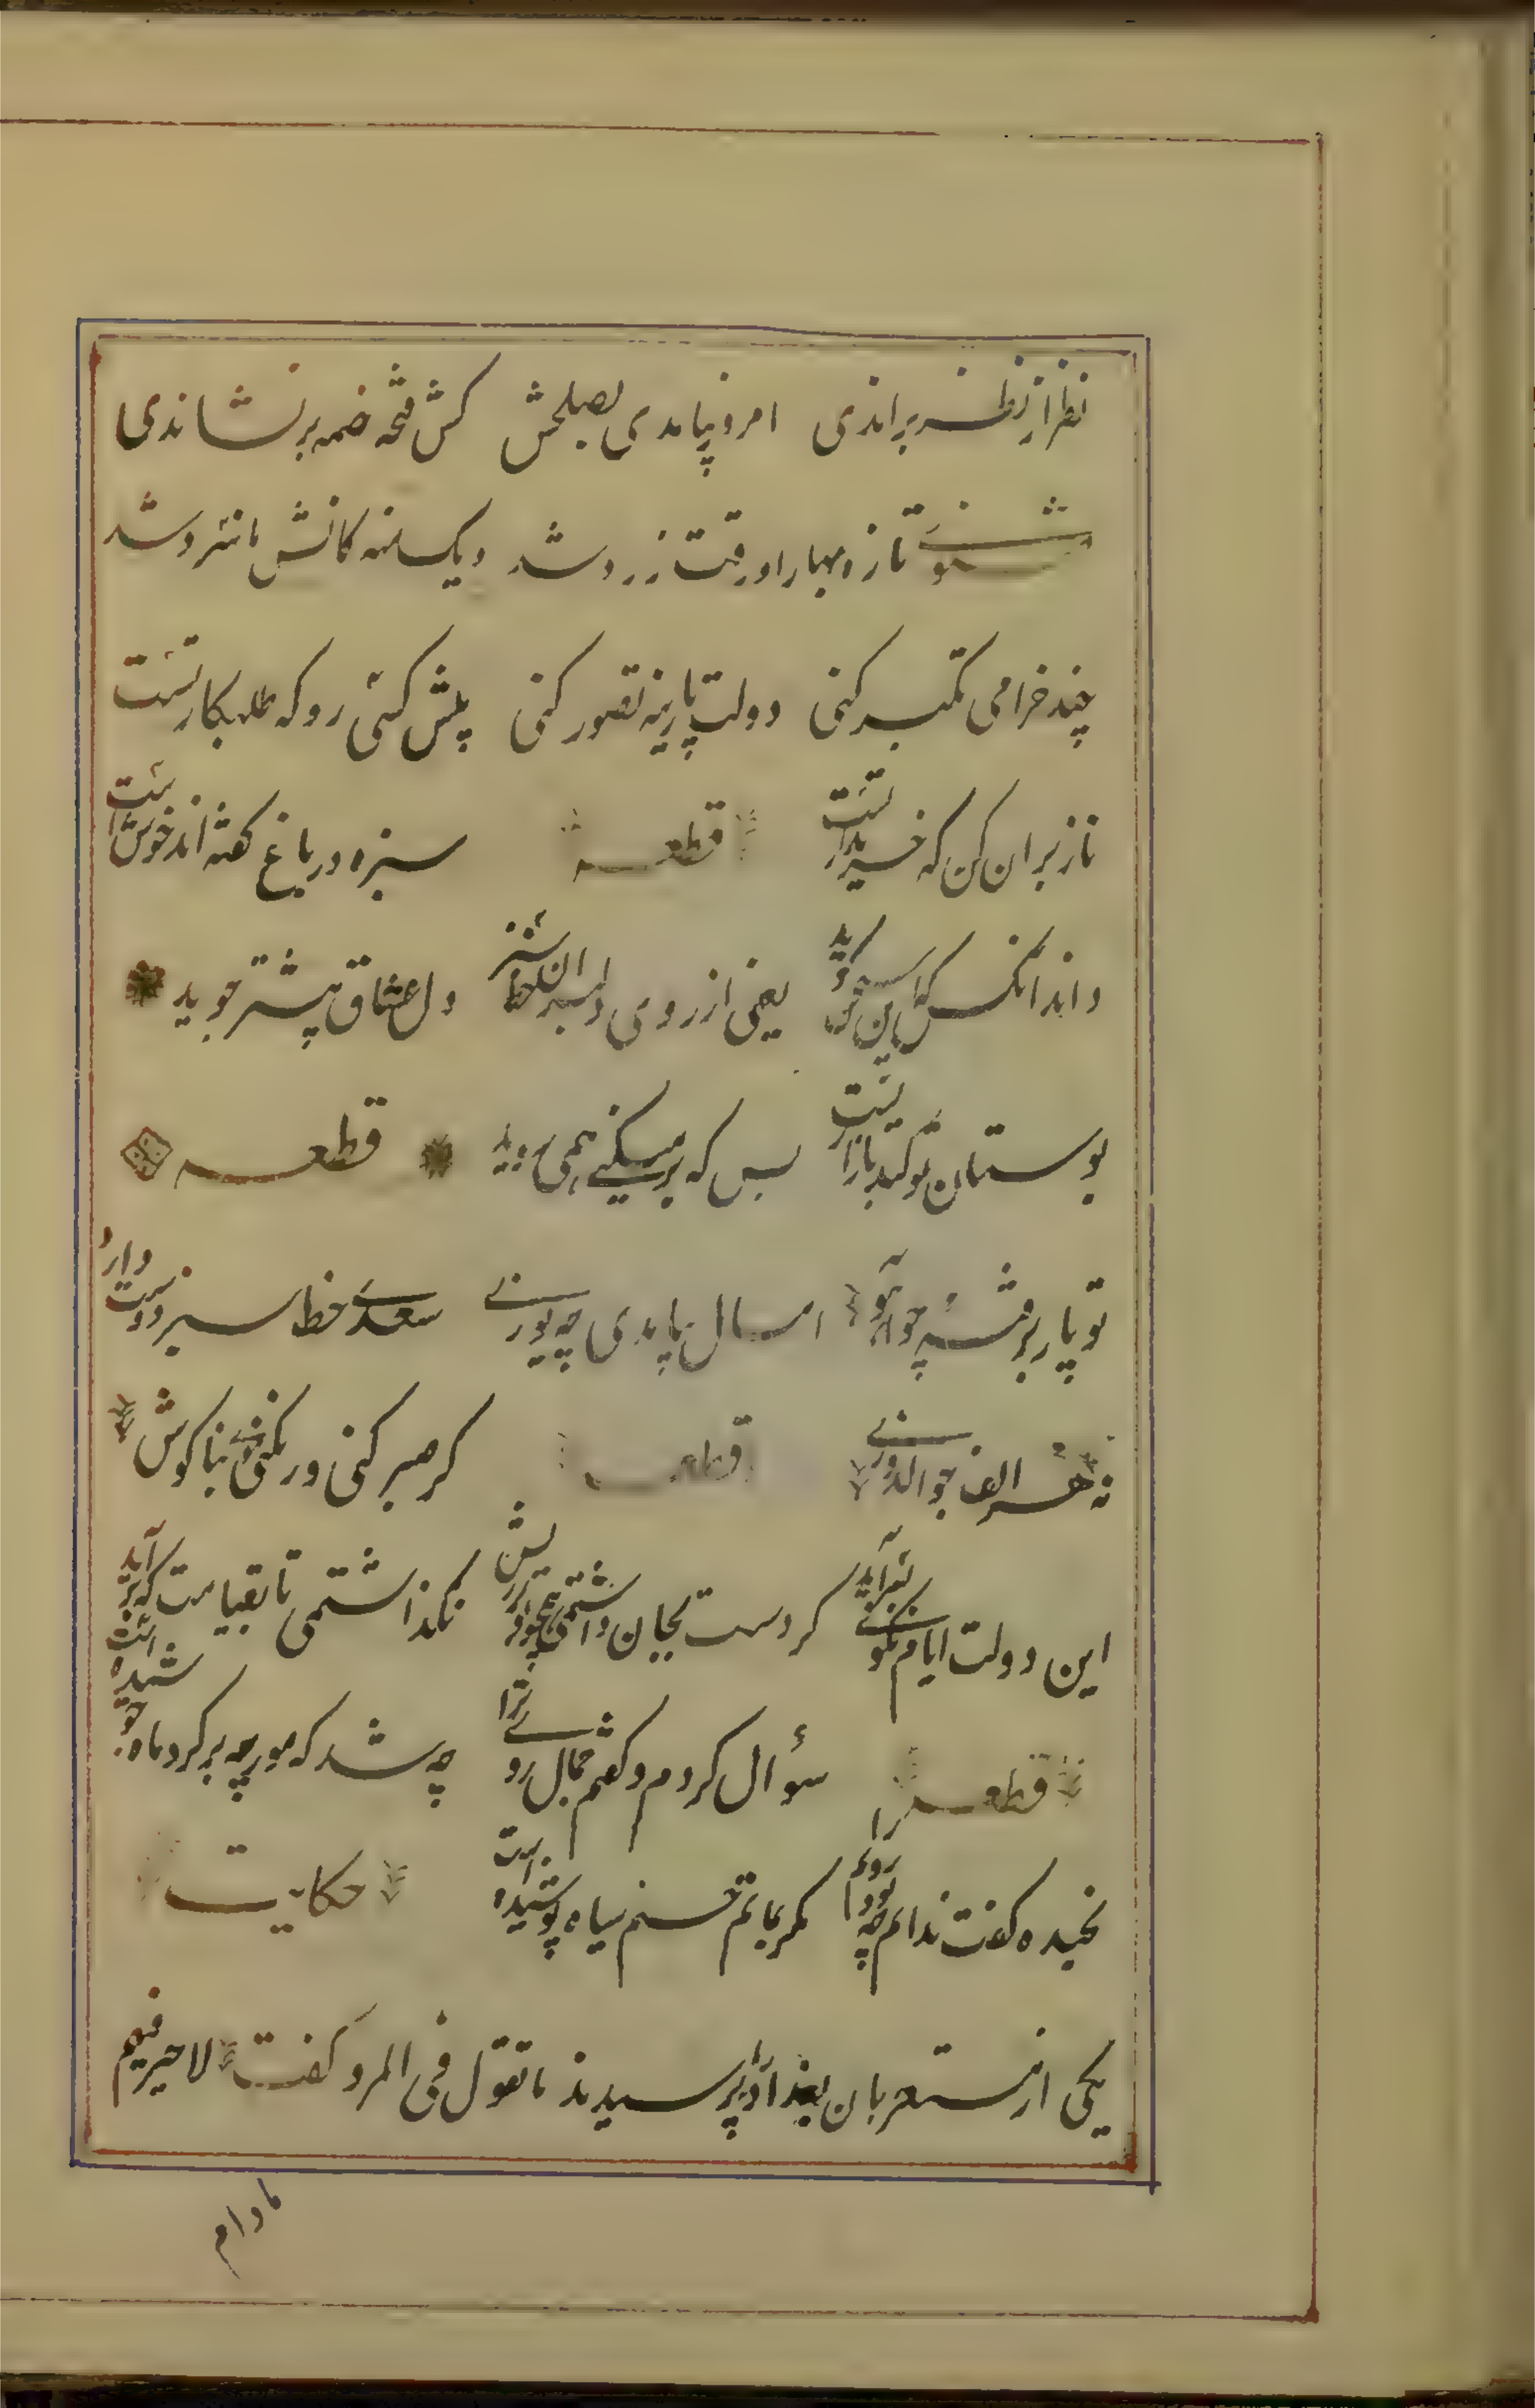 نظر از نظر براندی امروز بیامدی بصلحش کش فتحه ضمه برنشاندی
مثنوی تازه بهارا ورقت زرد شد دیک منه کاتش ما سرد شد
چند خرامی تکبر کنی دولت پارینه تصور کنی پیش کسی رو که طلبکار تست
ناز بران کن که خریدار تست قطعه سبزه در باغ کفته اند خوش است
داند انکس که این سخن کوید یعنی از روی دلبران خط سبز دل عشاق بیشتر جوید
بوستان تو کند نا زاریست بس که بر میکنی همی روید قطعه
تو پار برفته چو آهو امسال بیامدی چو یوزی سعدی خط سبز دوست دارد
نه هر الف جوالدوزی قطعه کر صبر کنی ور نکنی موی بناکوش
این دولت ایام نکوئی بسر آید کر دست بجان داشتمی همچو تو بر ریش نکذاشتمی تا بقیامت که بر آید
قطعه سؤال کردم و کفتم جمال روی ترا چه شد که مورچه بر کرد ماه جوشیده است
بخنده کفت ندانم چه بود رویم را مکر بماتم حسنم سیاه پوشیده است حکایت
یکی از مستعربان بغداد را پرسیدند ما تقول فی المرد کفت لا خیر فیهم
مادام